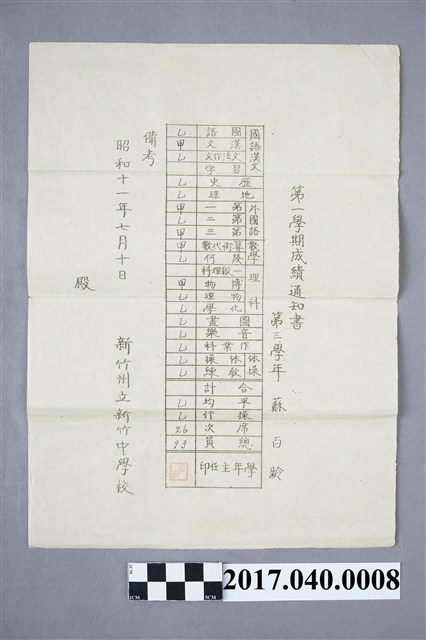 第一學期成績通知書
第三學年 蘇百齡
國語漢文
國語 乙
漢文 甲
文法作文 乙
習字
歷史 乙
地理 乙
外國語
第一 甲
第二 乙
第三 甲
數學
算術代數 甲
幾何 乙
理科
一般理科
博物 甲
物理 乙
化學 乙
圖畫 乙
音樂 乙
作業科 乙
体操
体操 乙
敎練 乙
合計
平均 乙
操行 乙
席次 26
總員 93
學年主任印
備考
昭和十一年七月十日
新竹州立新竹中學校
殿
2017.040.0008